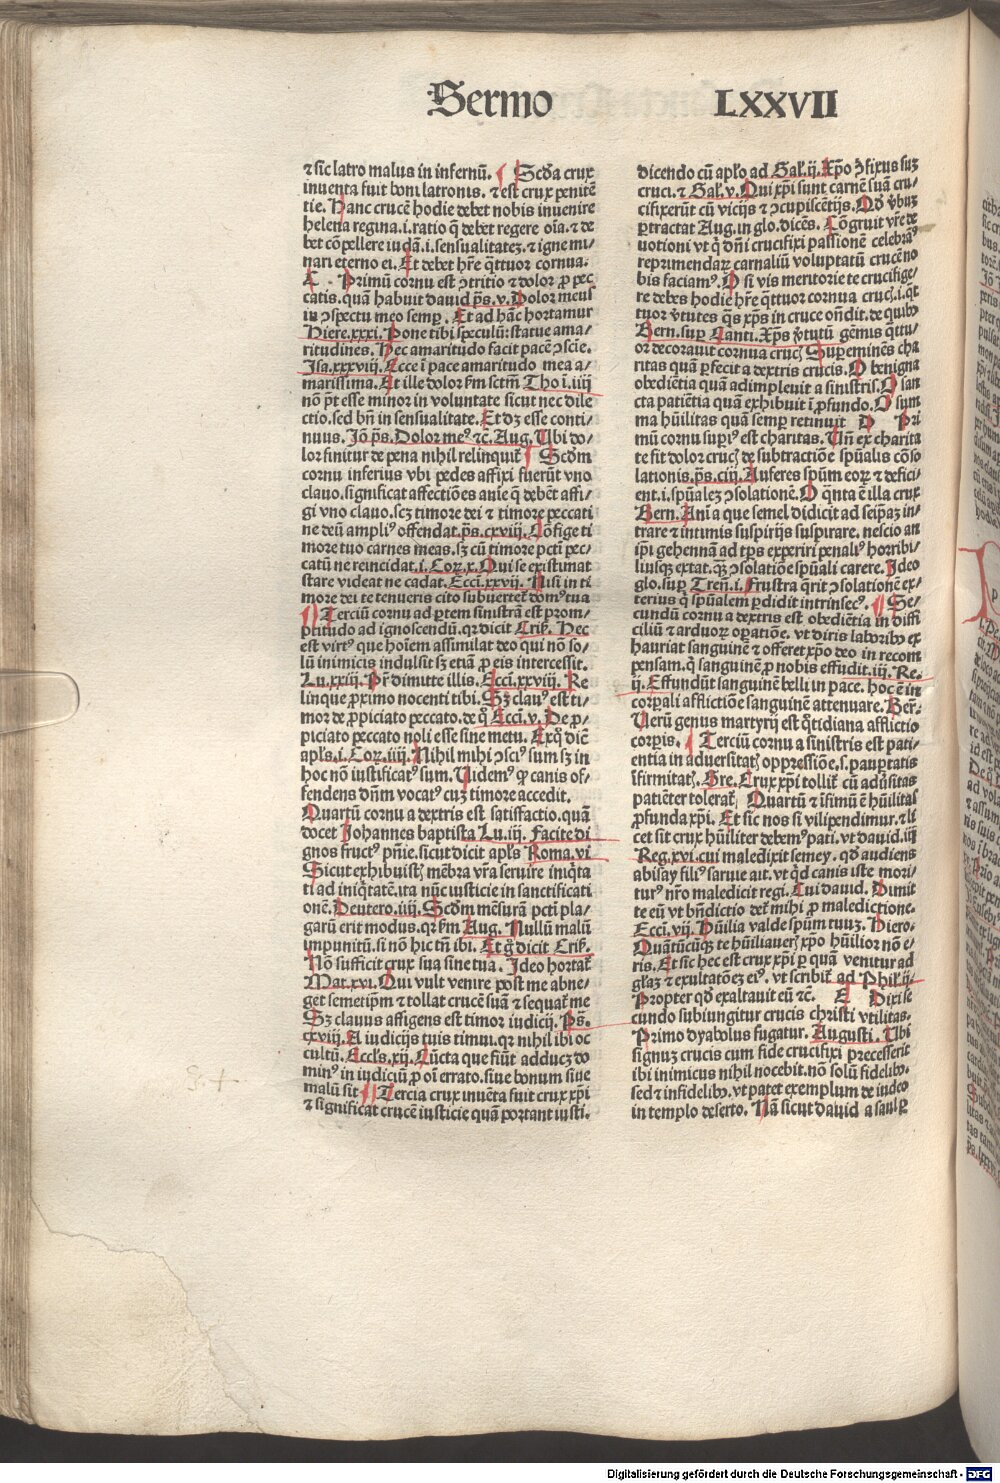 Sermo LXXVII
⁊ sic latro malus in infernū. ¶ Scďa crux
inuenta fuit boni latronis. ⁊ est crux penitē
tie. Hanc crucē hodie debet nobis inuenire
helena regina.i.ratio q̄ debet regere oīa.⁊ de
bet cōpellere iudā.i.sensualitatez.⁊ igne mi/
nari eterno ei. Et debet hr̄e q̄ttuor cornua.
C Primū cornu est ↄtritio ⁊ dolor ꝓ pec
catis.quā habuit dauid ps̄.v. Dolor meus
in ↄspectu meo semꝑ. Et ad hāc hortamur
Hiere.xxxi. Pone tibi speculū:statue ama/
ritudines. Hec amaritudo facit pacē ↄscīe.
Isa.xxxviij. Ecce ī pace amaritudo mea a/
marissima. Et ille dolor ẜm sctm̄ Tho ī.iiij
nō pt̄ esse minor in voluntate sicut nec dile
ctio.sed bn̄ in sensualitate. Et dꝫ esse conti/
nuus. Jō ps̄. Dolor meꝰ ⁊c. Aug. Ubi do/
lor finitur de pena nihil relinquit̄ ¶ Scdm
cornu inferius vbi pedes affixi fuerūt vno
clauo.significat affectiōes aīe q̄ debēt affi/
gi vno clauo.scꝫ timore dei ⁊ timore peccati
ne deū ampliꝰ offendat.ps̄.cxviij. Cōfige ti
more tuo carnes meas.sꝫ cū timore pctī pec/
catū ne reincidat.i.Coꝝ.x. Qui se existimat
stare videat ne cadat. Eccī.xxvij. Nisi in ti
more dei te tenueris cito subuertet̄ domꝰ tua
¶ Terciū cornu ad ꝑtem sinistrā est prom/
ptitudo ad ignoscendū.qꝛ dicit Crisͥ. Hec
est virtꝰ que hoīem assimilat deo qui nō so/
lū inimicis indulsit sꝫ etiā ꝓ eis intercessit.
Lu.xxiij. Pr̄ dimitte illis. Eccī.xxviij. Re
linque ꝓximo nocenti tibi. Sꝫ clauꝰ est ti/
mor de ꝓpiciato peccato.de q̄ Eccī.v. De ꝓ/
piciato peccato noli esse sine metu. Exq̄ dic̄
apls̄.i.Coꝝ.iiij. Nihil mihi ↄsciꝰ sum sꝫ in
hoc nō iustificatꝰ sum. Uidemꝰ ꝙ canis of/
fendens dn̄m vocatꝰ cuꝫ timore accedit.
Quartū cornu a dextris est satisfactio.quā
docet Johannes baptista Lu.iij. Facite di
gnos fructꝰ pn̄ie.sicut dicit apls̄ Roma.vi
Sicut exhibuistꝭ mēbra vr̄a seruire iniq̄ta
ti ad iniq̄tatē.ita nūc iusticie in sanctificati
onē. Deutero.iiij. Scdm mēsurā pctī pla/
garū erit modus.qꝛ ẜm Aug. Nullū malū
impunitū.si nō hic tn̄ ibi. Et g̊ dicit Crisͥ.
Nō sufficit crux sua sine tua. Ideo hortat̄
Mat.xvi. Qui vult venire post me abne/
get semetip̄m ⁊ tollat crucē suā ⁊ sequat̄ me
Sꝫ clauus affigens est timor iudicij. Ps̄.
cxviij. A iudicijs tuis timui.qꝛ nihil ibi oc
cultū. Eccls̄.xij. Cūcta que fiūt adducꝫ do
minꝰ in iudiciū ꝓ oī errato.siue bonum siue
malū sit ¶ Tercia crux inuēta fuit crux xp̄i
⁊ significat crucē iusticie quā portant iusti.
dicendo cū apl̄o ad Gal.ij. Xp̄o ↄ̄fixus suꝫ
cruci.⁊ Gal.v. Qui xp̄i sunt carnē suā cru/
cifixerūt cū vicijs ⁊ ↄcupiscētijs. Qd̄ v̄buꝫ
ꝑtractat Aug.in glo.dicēs. Cōgruit vr̄e de
uotioni vt q̄ dn̄i crucifixi passionē celebraꝰ
reprimendaꝝ carnaliū voluptatū crucē no
bis faciamꝰ. O si vis meritorie te crucifige/
re debes hodie hr̄e q̄ttuor cornua crucꝭ.i.q̄t
tuor v̄tutes q̄s xp̄s in cruce oñdit.de quibꝰ
Bern.suꝑ Canti. Xp̄s v̄tutū gēmis q̄ttu/
or decorauit cornua crucꝭ Suꝑeminēs cha
ritas quā ꝑfecit a dextris crucis. O benigna
obediētia quā adimpleuit a sinistris. O san
cta patiētia quā exhibuit ī ꝓfundo. O sum
ma hūilitas quā semꝑ retinuit D Pri
mū cornu suꝑiꝰ est charitas. Un̄ ex charita
te fit dolor crucꝭ de subtractiōe spūalis cōso
lationis.ps̄.ciij. Auferes spūm eoꝝ ⁊ defici/
ent.i.spūalez ↄsolationē. O q̄nta ē illa crux
Bern. Aīa que semel didicit ad seip̄aꝫ in/
trare ⁊ intimis suspirijs suspirare. nescio an
ip̄i gehennā ad tp̄s experiri penaliꝰ horribi/
liusqꝫ extat.qꝫ ↄsolatiōe spūali carere. Ideo
glo.suꝑ Treñ.i. Frustra q̄rit ↄsolationē ex/
terius q̄ spūalem ꝑdidit intrinsecꝰ. ¶ Se/
cundū cornu a dextris est obediētia in diffi
ciliū ⁊ arduoꝝ oꝑatiōe. vt diris laboribꝰ ex
hauriat sanguinē ⁊ offeret xp̄o deo in recom
pensam.q̄ sanguinē ꝓ nobis effudit.iij. Re.
ij. Effundūt sanguinē belli in pace. hoc ē in
corꝑali afflictiōe sanguinē attenuare. Ber̄.
Ueru genus martyrij est q̄tidiana afflictio
corꝑis. ¶ Terciū cornu a sinistris est pati/
entia in aduersitatꝭ oppressiōe.s.pauꝑtatis
īfirmitatꝭ. Gre. Crux xp̄i tollit̄ cū aduͤsitas
patiēter tolerat̄ Quartū ⁊ īfimū ē hūilitas
ꝓfunda xp̄i. Et sic nos si vilipendimur.⁊ li
cet sit crux hūiliter debemꝰ pati.vt dauid.iij
Reg.xvi.cui maledixit semey. qd̄ audiens
abisay filiꝰ saruie ait.vt qd̄ canis iste mori/
turꝰ nr̄o maledicit regi. Cui dauid. Dimit
te eū vt bn̄dictio det̄ mihi ꝓ maledictione.
Ecci.vij. Hūilia valde spūm tuuꝫ. Hiero.
Quātūcūqꝫ te hūiliauerꝭ xp̄o hūilior nō e/
ris. Et sic hec est crux xp̄i ꝑ quā venitur ad
gl̄aꝫ ⁊ exultatōeꝫ eiꝰ. vt scribit̄ ad Phil.ij.
Propter qd̄ exaltauit eū ⁊c. E Dixi se
cundo subiungitur crucis christi vtilitas.
Primo dyabolus fugatur. Augusti. Ubi
signuꝫ crucis cum fide crucifixi precesserit
ibi inimicus nihil nocebit.nō solū fidelibꝰ.
sed ⁊ infidelibꝰ.vt patet exemplum de iudeo
in templo deserto. Nā sicut dauid a saul ꝑ
Digitalisierung gefördert durch die Deutsche Forschungsgemeinschaft - DFG